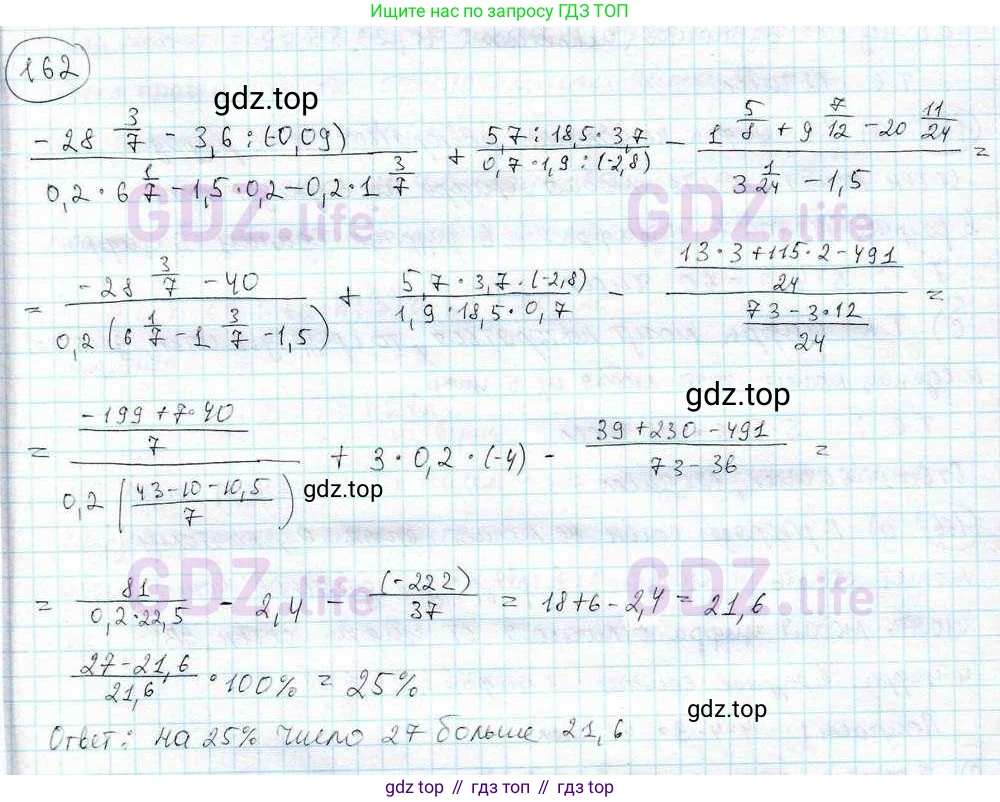 Ищите ответы по запросу ГДЗ ТОП
162
gdz.top
(-28 3/7 - 3,6 : (-0,09)) / (0,2 · 6 1/7 - 1,5 · 0,2 - 0,2 · 1 3/7) + (5,7 : 18,5 · 3,7) / (0,7 · 1,9 : (-2,8)) - (1 5/8 + 9 7/12 - 20 11/24) / (3 1/24 - 1,5) =
GDZ.life GDZ.life
= (-28 3/7 - 40) / (0,2 (6 1/7 - 1 3/7 - 1,5)) + (5,7 · 3,7 · (-2,8)) / (1,9 · 18,5 · 0,7) - ((13·3 + 115·2 - 491) / 24) / ((73 - 3·12) / 24) =
gdz.top
= ((-199 + 7·40) / 7) / (0,2 ((43 - 10 - 10,5) / 7)) + 3 · 0,2 · (-4) - (39 + 230 - 491) / (73 - 36) =
gdz.top
GDZ.life GDZ.life
= 81 / (0,2·22,5) - 2,4 - (-222) / 37 = 18 + 6 - 2,4 = 21,6
(27 - 21,6) / 21,6 · 100% = 25%
gdz.top
Ответ: на 25% число 27 больше 21,6
gdz.top // gdz.top // gdz.top // gdz.top